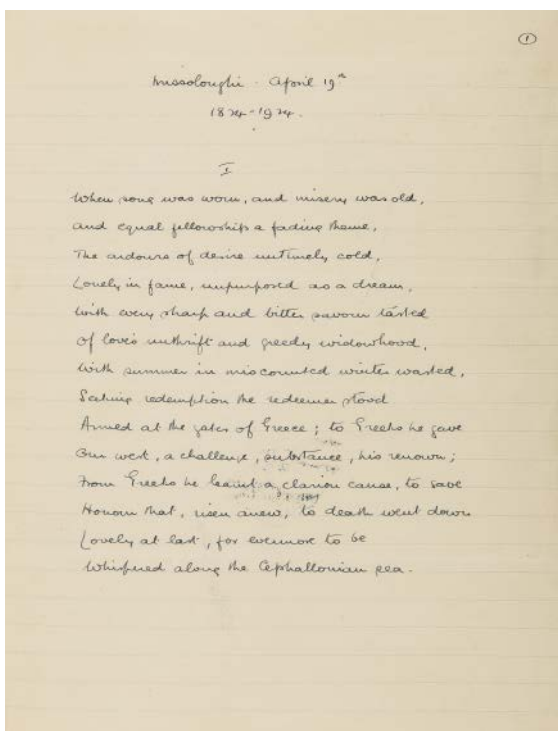 1
Missolonghi - April 19th
1824-1924.
I
When song was worn, and misery was old,
and equal fellowship a fading theme,
The ardours of desire untimely cold,
Lonely in fame, unpurposed as a dream,
With every sharp and bitter savour tasted
of love's unthrift and greedy widowhood,
With summer in miscounted winter wasted,
Seeking redemption the redeemer stood
Armed at the gates of Greece; to Greeks he gave
Our west, a challenge, substance, his renown;
From Greeks he learnt a clarion cause, to save
Honour that, risen anew, to death went down
Lovely at last, for evermore to be
Whispered along the Cephallonian sea.